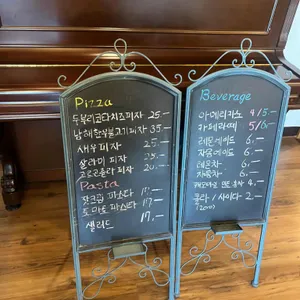 Pizza
두부리코타치즈피자 25.-
남해한우불고기피자 35.-
새우 피자 25.-
살라미 피자 25.-
고르곤졸라 피자 20.-
Pasta
파스타 17.-
토마토 파스타 17.-
샐러드 17.-
Beverage
아메리카노 4/5.-
카페라떼 5/6.-
레몬에이드 6.-
자몽에이드 6.-
레몬차 6.-
자몽차 6.-
6.-
콜라 / 사이다 2.-